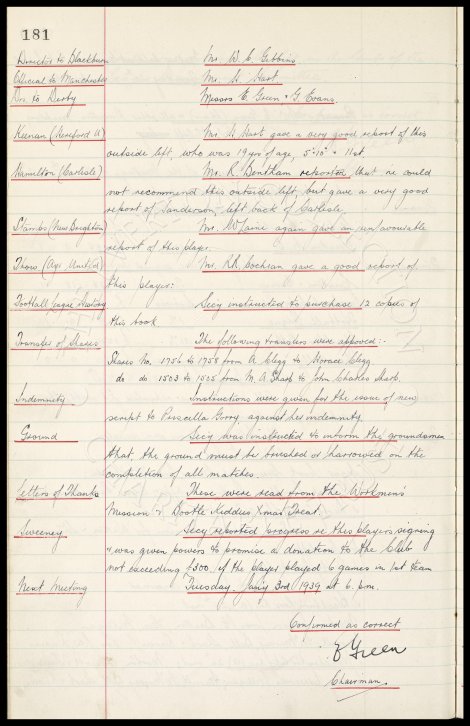 181
Director to Blackburn Mr. W. C. Gibbins
Official to Manchester Mr. H. Hart
Drs. to Derby Messrs E. Green & G. Evans.
Keenan (Hereford U) Mr. H Hart gave a very good report of this
outside left, who was 19 yrs of age, 5'-10" & 11 st.
Hamilton (Carlisle) Mr. R. Bentham reported that he could
not recommend this outside left but gave a very good
report of Sanderson, left back of Carlisle
Stamps (New Brighton) Mr. W. again gave an unfavourable
report of this player.
(Ayr United) Mr. RR Cochran gave a good report of
this player:
Football League History Secy instructed to purchase 12 copies of
this book
Transfer of Shares The following transfers were approved:-
Shares No. 1756 to 1758 from A. Clegg to Horace Clegg
do do 1503 to 1505 from M. A. Sharp to John Charles Sharp.
Indemnity Instructions were given for the issue of new
script to Priscilla Gorry against her indemnity.
Ground Secy was instructed to inform the groundsmen
that the ground must be brushed or harrowed on the
completion of all matches.
Letters of Thanks These were read from the Workmen's
Mission & Bootle Kiddies Xmas Treat.
Sweeney Secy reported progress re this players signing
& was given powers to promise a donation to the Club
not exceeding £300, if the player played 6 games in 1st team
Next Meeting Tuesday. Jany 3rd 1939 at 6. p.m.
Confirmed as correct
E Green
Chairman.